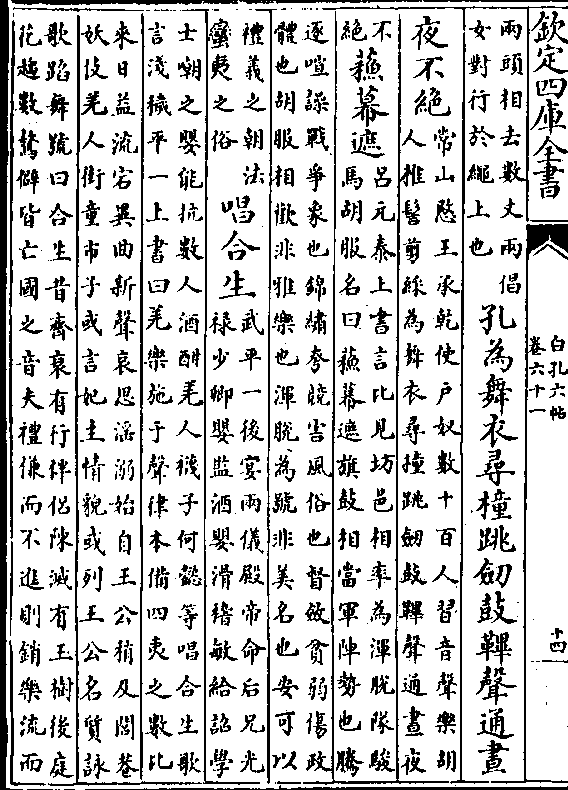 欽定四庫全書
白孔六帖
卷六十一
十四
兩頭相去數丈兩倡
女對行於繩上也
孔為舞衣尋橦跳劒鼓鞞聲通晝
夜不絶
常山愍王承乾使户奴數十百人習音聲樂胡
人椎髻剪綵為舞衣尋撞跳劒鼓鞞聲通晝夜
不
絶
蘓幕遮
吕元泰上書言比見坊邑相率為渾脱隊駿
馬胡服名曰蘓幕遮旗鼓相當軍陣勢也騰
逐喧譟戰爭象也錦繡夸競害風俗也督斂貧弱傷政
體也胡服相歡非雅樂也渾脱為號非美名也安可以
禮義之朝法
蠻夷之俗
唱合生
武平一後宴兩儀殿帝命后兄光
禄少卿嬰監酒嬰滑稽敏給詔學
士嘲之嬰能抗數人酒酣羌人襪子何懿等唱合生歌
言淺穢平一上書曰羌樂施于聲律本備四夷之數比
來日益流宕異曲新聲哀思淫溺始自王公稍及閭巷
妖伎羌人街童市子或言妃主情貌或列王公名質詠
歌蹈舞號曰合生昔齊衰有行伴侣陳滅有玉樹後庭
花趨數驁僻皆亡國之音夫禮慊而不進則銷樂流而